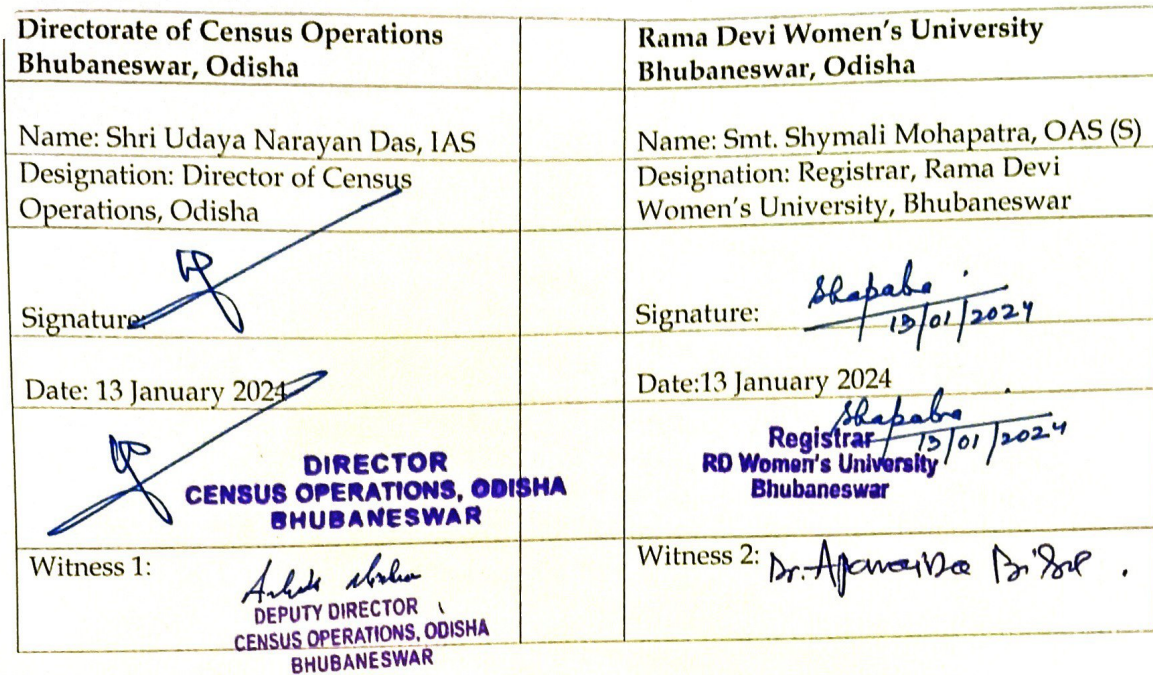 Directorate of Census Operations
Bhubaneswar, Odisha
Name: Shri Udaya Narayan Das, IAS
Designation: Director of Census
Operations, Odisha
Signature:
Date: 13 January 2024
DIRECTOR
CENSUS OPERATIONS, ODISHA
BHUBANESWAR
Witness 1:
DEPUTY DIRECTOR
CENSUS OPERATIONS, ODISHA
BHUBANESWAR
Rama Devi Women's University
Bhubaneswar, Odisha
Name: Smt. Shymali Mohapatra, OAS (S)
Designation: Registrar, Rama Devi
Women's University, Bhubaneswar
Signature:
13/01/2024
Date:13 January 2024
Registrar 13/01/2024
RD Women's University
Bhubaneswar
Witness 2: Dr.